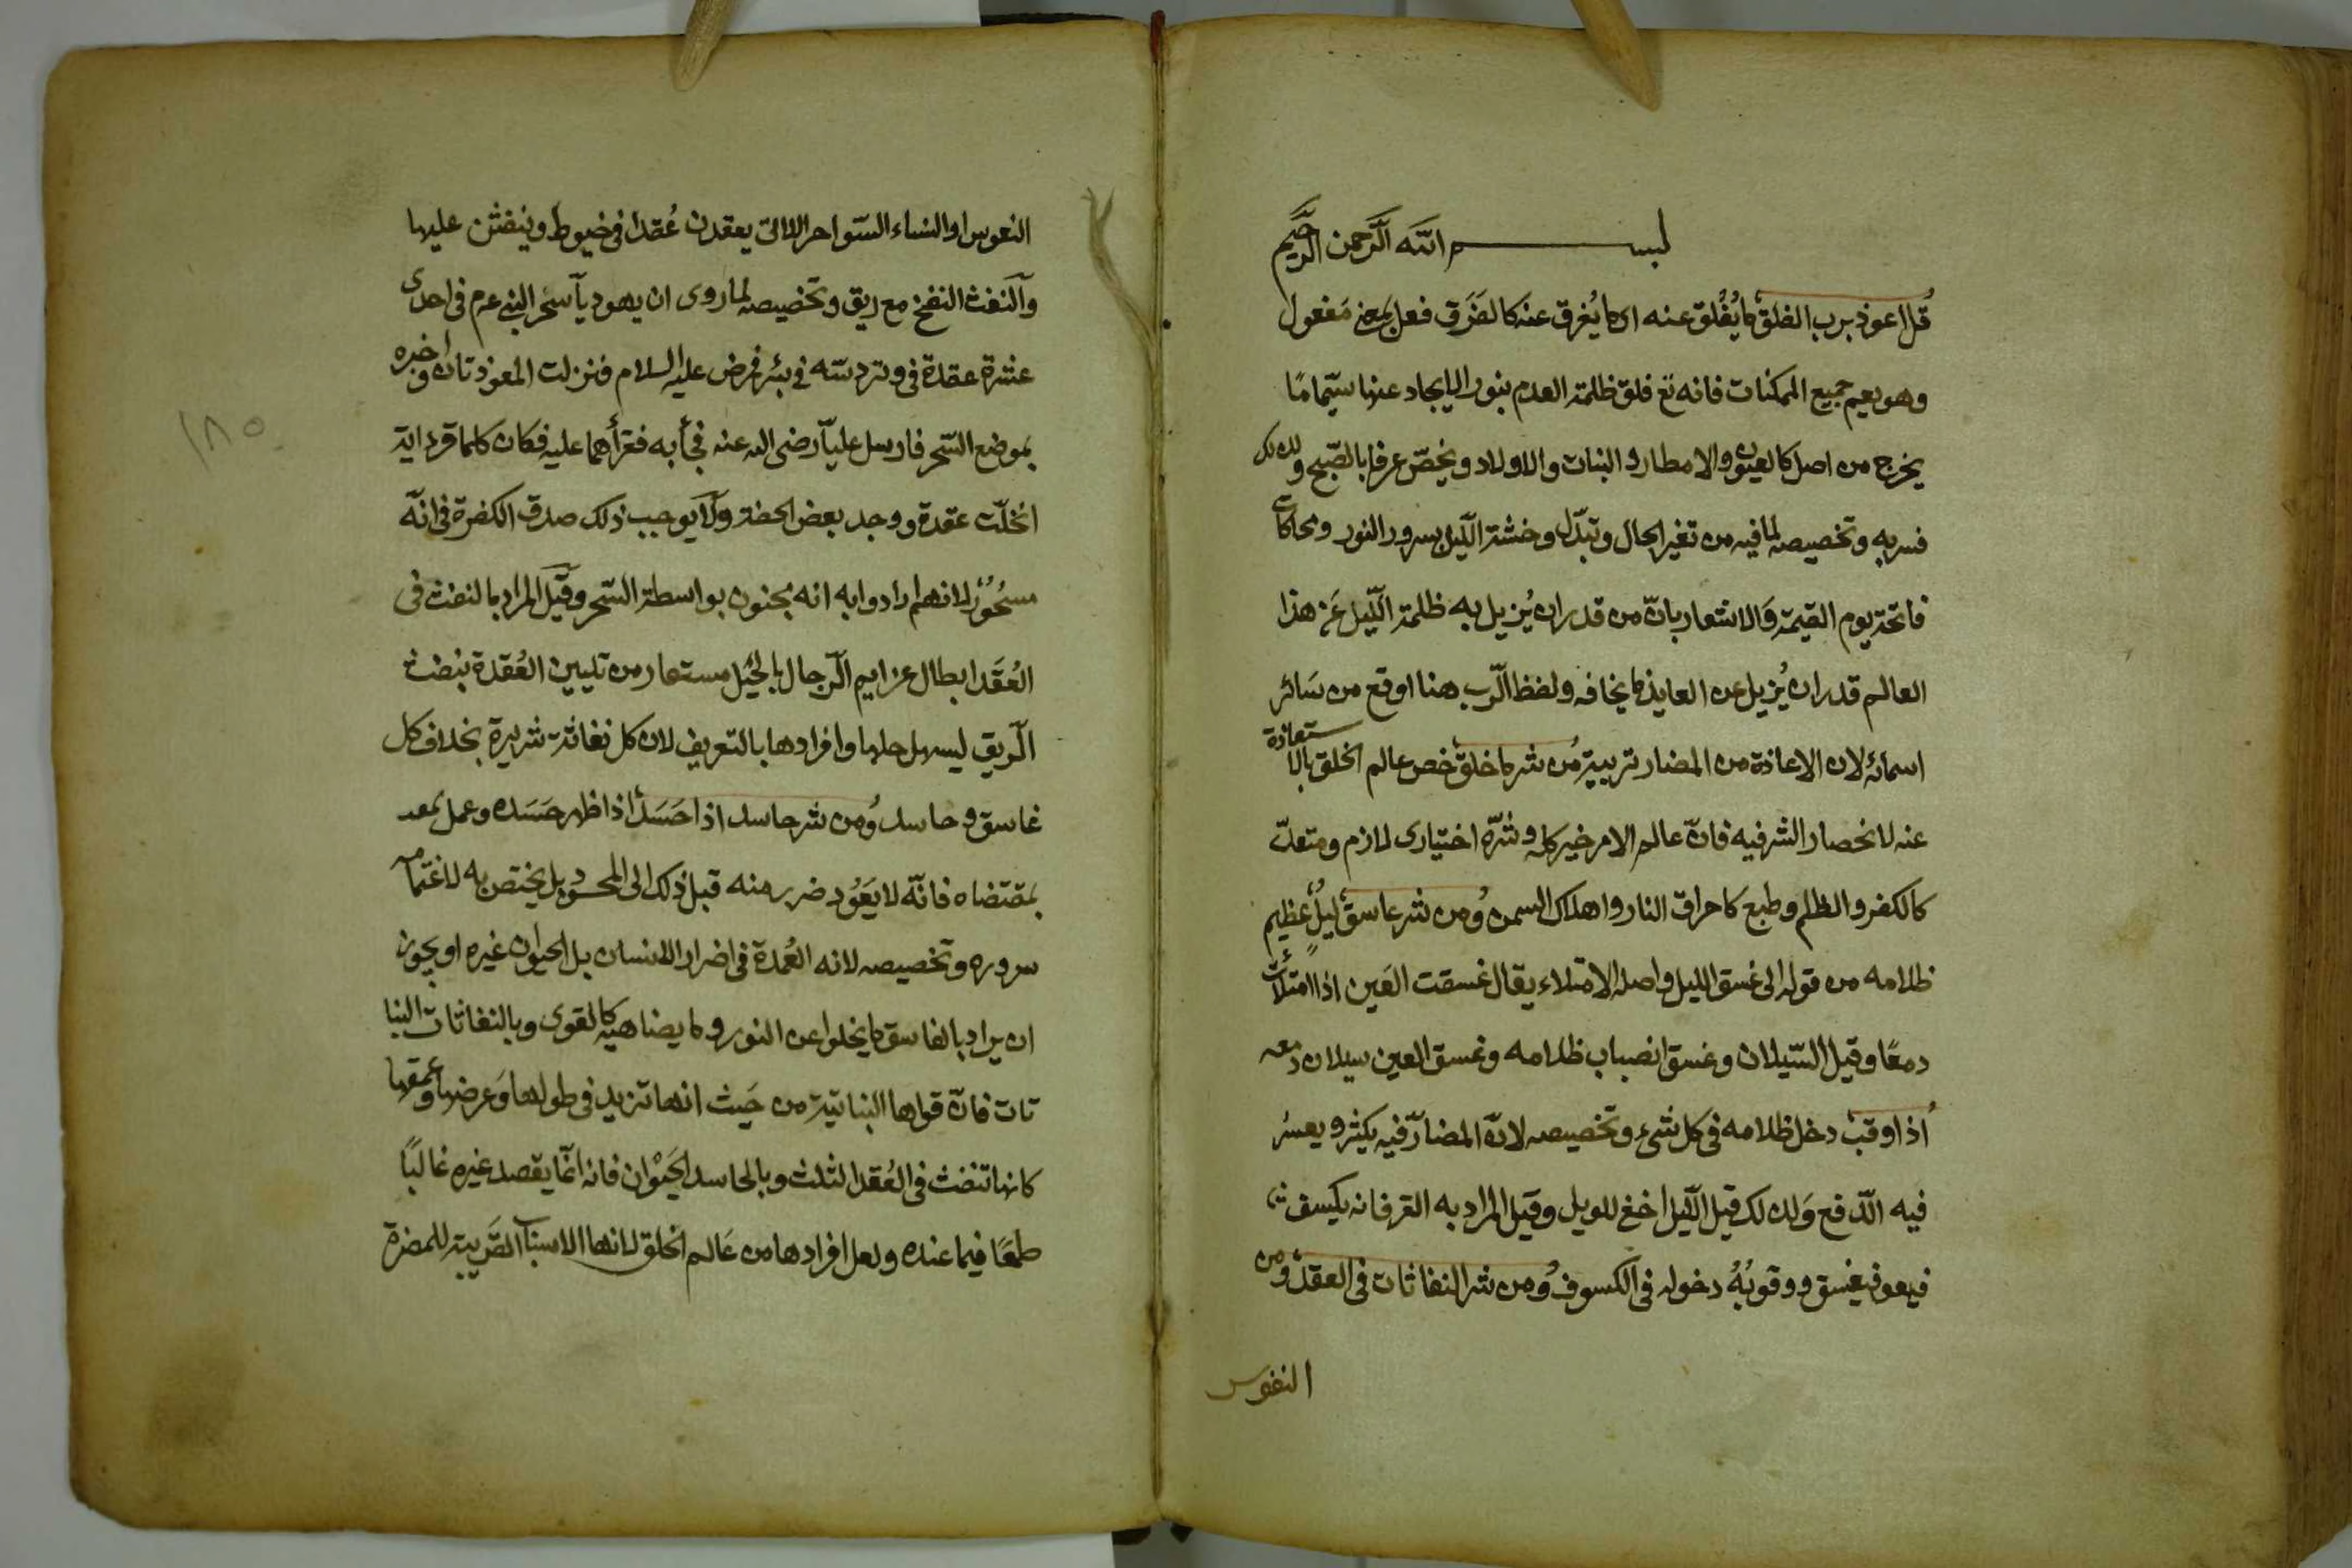 بسم الله الرحمن الرحيم
قل اعوذ برب الفلق ما يُفلق عنه اى ما يُفرق عنه كالفَرَق فعل بمعنى مَفعول
وهو يعم جميع الممكنات فانه تع فلق ظلمة العدم بنور الايجاد عنها سيّما ما
يخرج من اصل كالعيون والامطار والنبات والاولاد ويخصّ عرفا بالصّبح ولذلك
فسر به وتخصيصه لما فيه من تغير الحال وتبدّل وحشة الّليل بسرور النور ومحاكات
فاتحة يوم القيمة وَالاشعار بانّ من قدر ان يُزيل به ظلمة الّليل عَن هذا
العالم قدر ان يُزيل عن العايذ ما يخافه ولفظ الّرب هنا اوقع من سَائر
اسمائه لان الاعاذة من المضار تربية من شر ما خلق خص عالم الخلق بالاستعاذة
عنه لانحصار الشر فيه فانّ عالم الامر خير كله وشرّه اختيارى لازم ومتعدّ
كالكفر والظلم وطبع كاحراق النار واهلاك السمن ومن شر غاسق ليلٌ عظيم
ظلامه من قوله الى غسق الليل واصله الامتلاء يقال غسقت العَين اذا امتلأت
دمعًا وقيل السّيلان وغسق انصباب ظلامه وغسق العين سيلان دمعه
اذا وقب دخل ظلامه فى كل شىء وتخصيصه لانّ المضارّ فيه يكثر ويعسُر
فيه الّدفع وَلذلك قيل الّليل اخفى للويل وقيل المراد به القمر فانه يكسف
فيعوذ يغسق ووقوبُهُ دخوله فى الكسوف ومن شر النفاثات فى العقد ومن
النفوس
النفوس او النساء السّواحر اللاتى يعقدن عُقدا فى خيوط وينفثن عليها
والنفث النفخ مع ريق وتخصيصه لما روى ان يهوديآ سَحر النبى عم فى احدى
عشرة عقدة فى وتر دسّه فى بئر فمرض عليه السلام فنزلت المعوذتان واخبره
بموضع السّحر فارسل عليآ رضى الله عنه فجأ به فقرأهما عليه فكان كلما قرء اية
انحلّت عقدة ووجد بعض الخفة ولَا يوجب ذلك صدق الكفرة فى انّه
مسحُورٌ لانهم ارادوا به انه مجنون بواسطة السّحر وقيل المراد بالنفث فى
العُقَد ابطال عزايم الّرجال بالحيَل مستعار من تليين العُقدة بنفث
الّريق ليسهل حلها وافرادها بالتعريف لان كل نفاثة شريرة بخلاف كل
غاسق وحاسد ومن شر حاسد اذا حَسَدَ اذا ظهر حَسَده وعمل بمعد
بمقتضاه فانّه لا يَعُود ضرر منه قبل ذلك الى المحسود بل يختص به لاغتمامه
سروره وتخصيصه لانه العُمدة فى اضرار الانسان بل الحيوان غيره او يجوز
ان يراد بالغاسق ما يخلوا عن النور وما يضاهيه كالقوى وبالنفاثات النبا
تات فانّ قواها النباتية من حَيث انها تزيد فى طولها وَعرضها وعمقها
كانها تنفث فى العُقد الثلث وبالحاسد الحَيَوان فانه انّما يقصد غيره غالبًا
طمعًا فيما عنده ولعل افرادها من عَالم الخلق لانها الاسباب القَريبة للمضرة
١٨٥